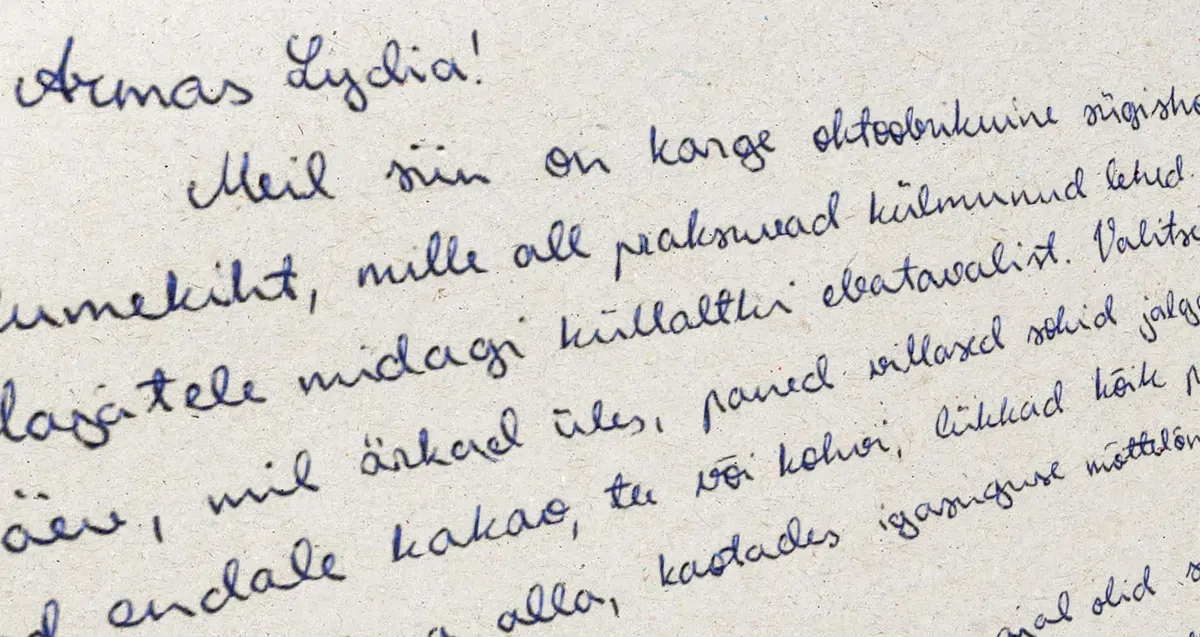 Armas Lydia!
Meil siin on karge oktoobrikuine sügisho
lumekiht, mille all praksuvad külmunud lehed.
lajatele midagi küllaltki ebatavalist. Valitse
äev, mil ärkad üles, paned villased sokid jalga
d endale kakao, tee või kohvi, lükkad kõik p
alla, kaotades igasuguse mõttelõn
ajal olid s